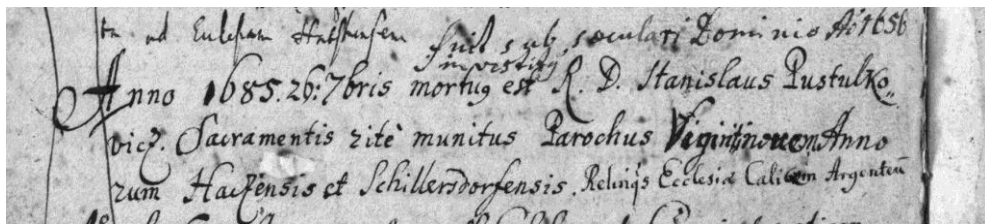 ad Ecclesiam fuit sub sæculari Dominio Aō 1656
investitg
Anno 1685. 26: 7bris mortug est R. D. Stanislaus Pustulko,,
vicz. Sacramentis ritè munitus Parochus Vigintinovem Anno
rum Haczensis et Schillersdorfensis. Relinqs Ecclesiæ Calicem Argenteū